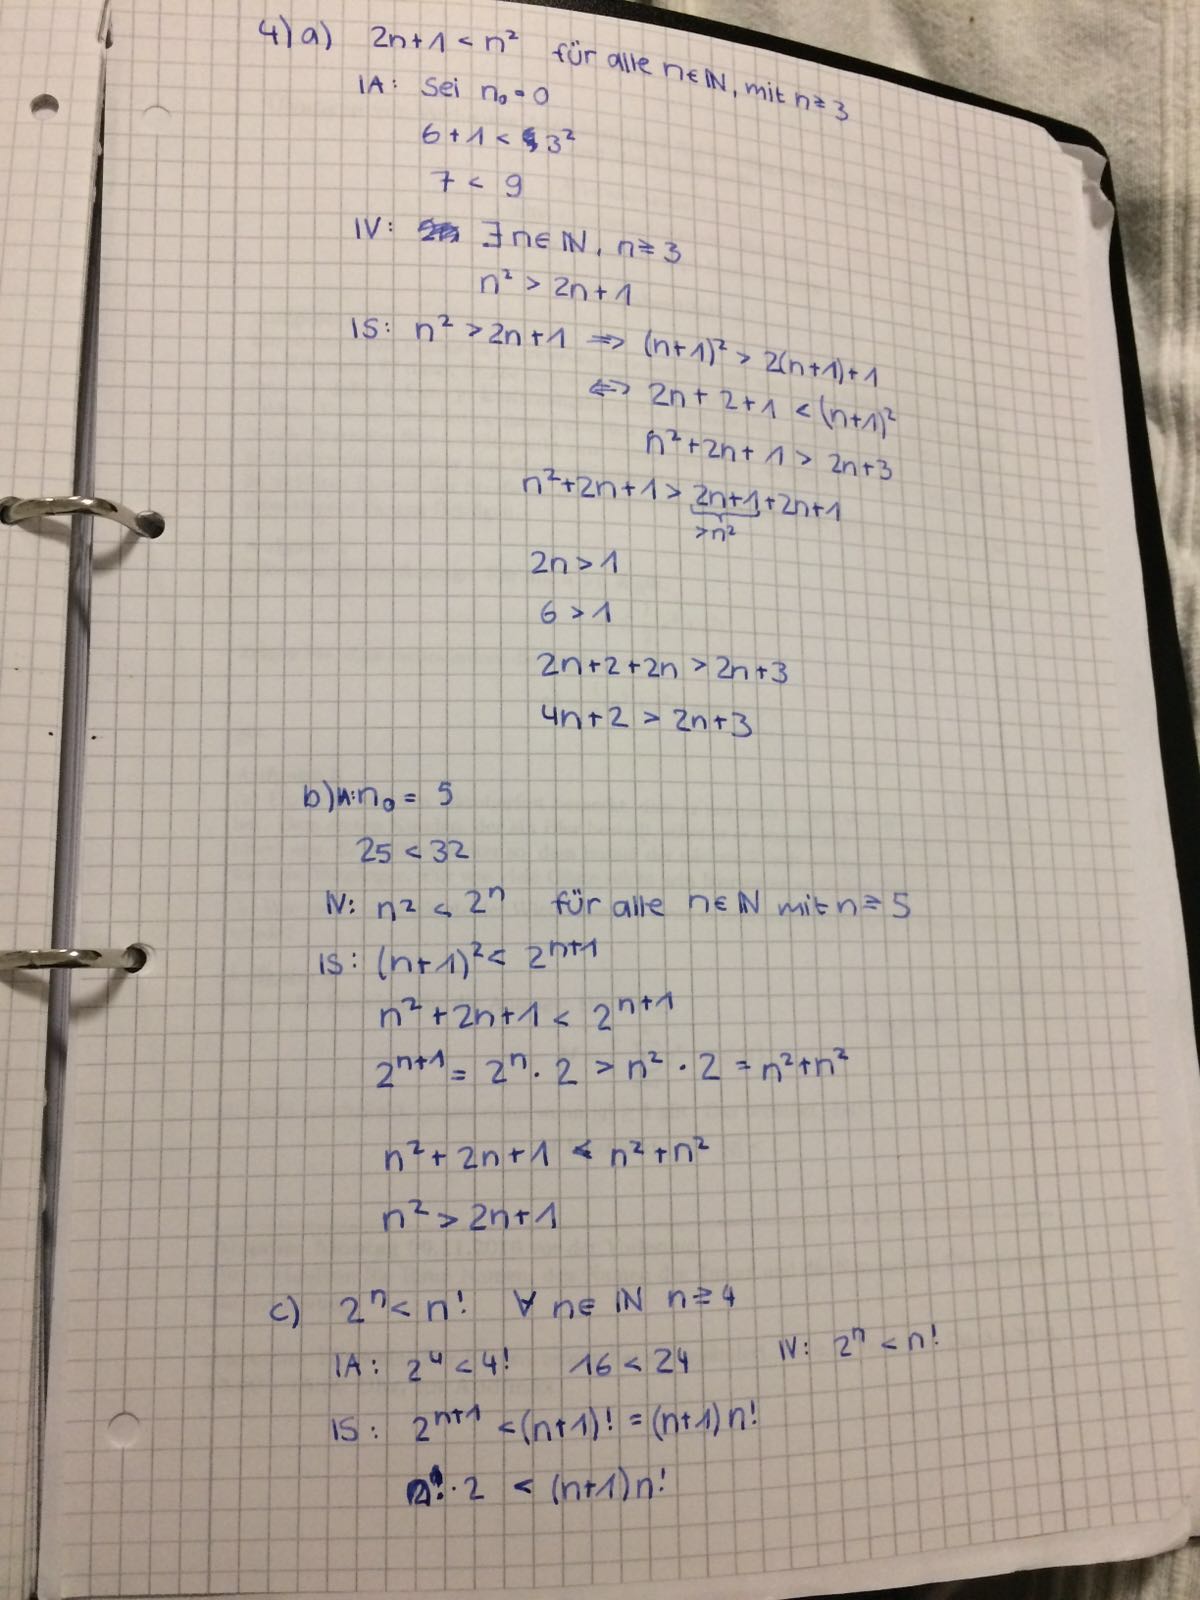 4) a) 2n+1 < n² für alle n∈ℕ, mit n≥3
IA: Sei n₀=0
6+1 < 3²
7 < 9
IV: ∃n∈ℕ, n≥3
n² > 2n+1
IS: n² > 2n+1 ⇒ (n+1)² > 2(n+1)+1
⇔ 2n+2+1 < (n+1)²
n²+2n+1 > 2n+3
n²+2n+1 > 2n+1+2n+1
>n²
2n > 1
6 > 1
2n+2+2n > 2n+3
4n+2 > 2n+3
b) n₀ = 5
25 < 32
IV: n² < 2ⁿ für alle n∈ℕ mit n≥5
IS: (n+1)² < 2ⁿ⁺¹
n²+2n+1 < 2ⁿ⁺¹
2ⁿ⁺¹ = 2ⁿ · 2 > n² · 2 = n²+n²
n²+2n+1 < n²+n²
n² > 2n+1
c) 2ⁿ < n! ∀ n∈ℕ n≥4
IA: 2⁴ < 4! 16 < 24 IV: 2ⁿ < n!
IS: 2ⁿ⁺¹ < (n+1)! = (n+1)n!
· 2 < (n+1)n!